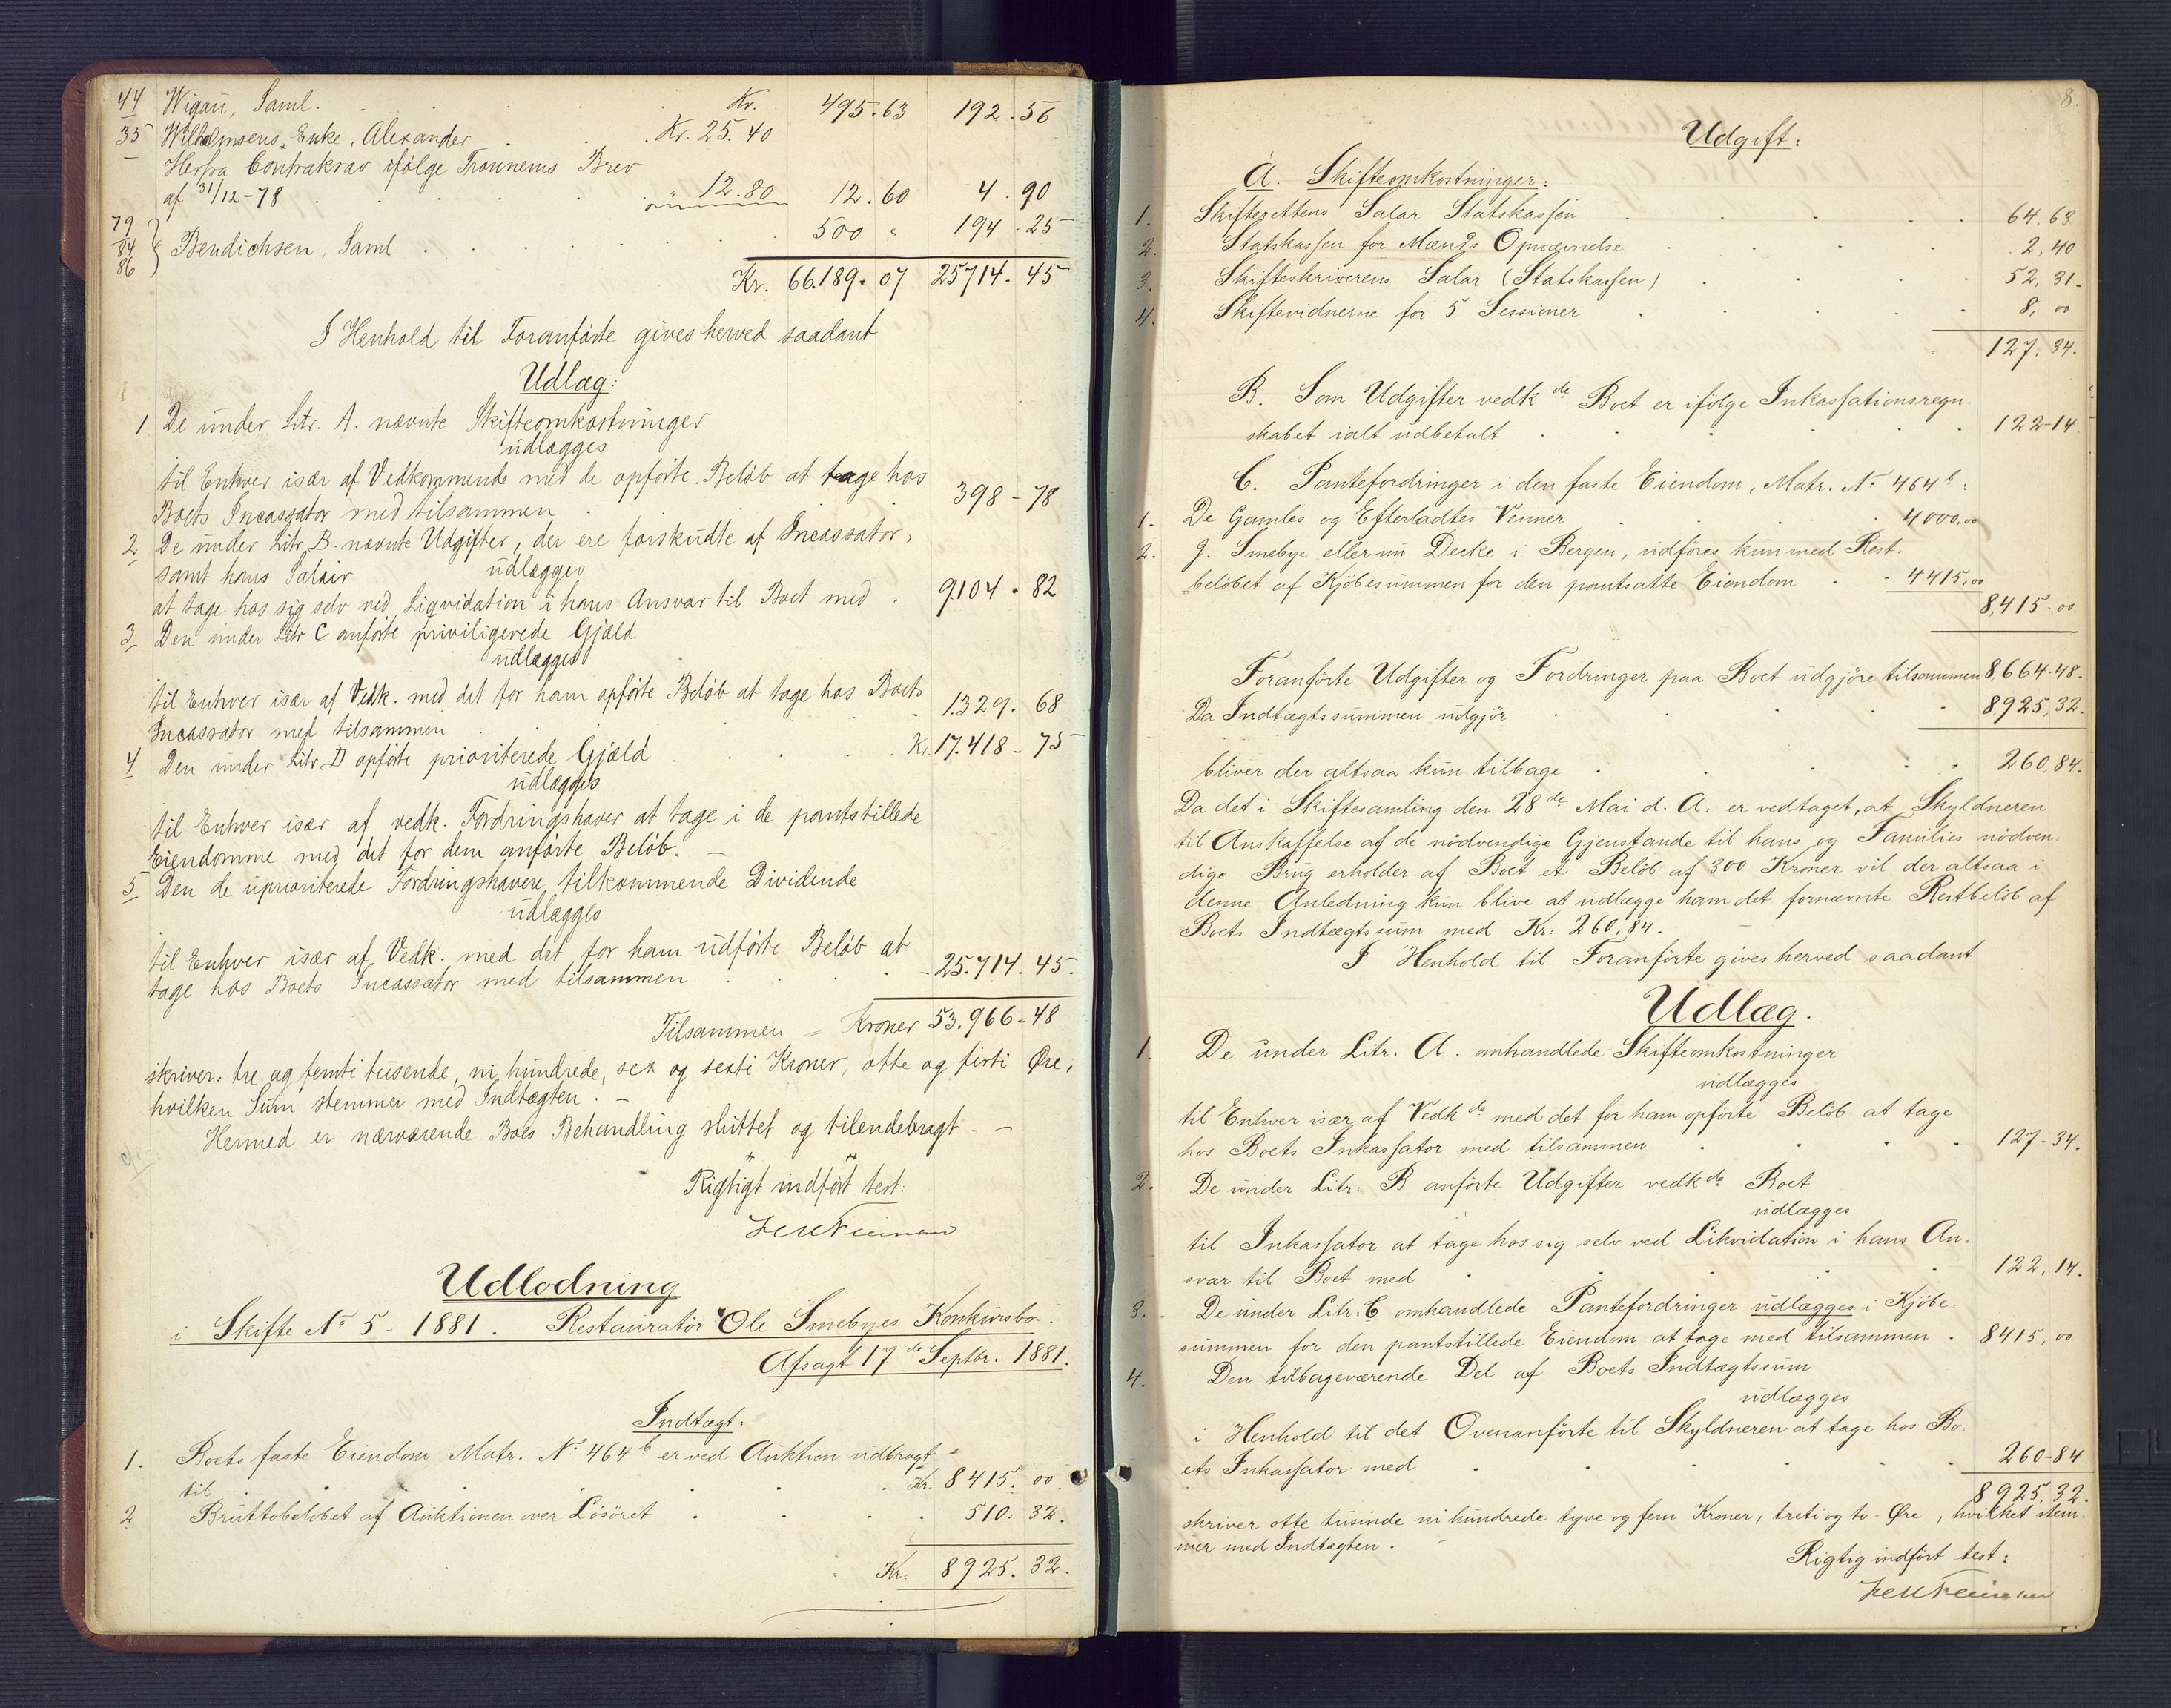 44 Wigau, Saml. Kr. 495.63 192.56
35 Wilhelmsens Enke, Alexander Kr. 25.40
Herfra Contrakrav ifölge Tronnems Brev
af 31/12-78 " 12.80 12.60 4.90
79
84 Bendichsen, Saml 500 " 194.25
86
Kr. 66.189.07 25714.45
I Henhold til Foranførte gives herved saadant
Udlæg:
1 De under Litr. A. nævnte Skifteomkostninger
udlægges
til Enhver især af Vedkommende med de opførte Beløb at tage hos
Boets Incassator med tilsammen 398-78
2 De under Litr. B. nævnte Udgifter, der ere forskudte af Incassator,
samt hans Salair udlægges
at tage hos sig selv ved Liqvidation i hans Ansvar til Boet med 9.104.82
3 Den under Litr C anførte priviligerede Gjæld
udlægges
til Enhver især af Vedk. med det for ham opførte Beløb at tage hos Boets
Incassator med tilsammen 1.329.68
4 Den under Litr. D opførte prioriterede Gjæld Kr. 17.418-75
udlægges
til Enhver især af vedk. Fordringshaver at tage i de pantstillede
Eiendomme med det for dem anførte Beløb. -
5 Den de uprioriterede Fordringshavere tilkommende Dividende
udlægges
til Enhver især af Vedk. med det for ham udførte Beløb at
tage hos Boets Incassator med tilsammen -25.714.45.
Tilsammen - Kroner 53.966-48
skriver: tre og femti tusende, ni hundrede, sex og sexti Kroner, otte og firti Øre,
hvilken Sum stemmer med Indtægten. -
Hermed er nærværende Boes Behandling sluttet og tilendebragt. -
Rigtigt indført test:
Udlodning
i Skifte No 5 - 1881. Restauratör Ole Smebyes Konkursbo.
Afsagt 17de Septbr. 1881.
Indtægt:
1. Boets faste Eiendom Matr. No 464b er ved Auktion udbragt
til Kr. 8415.00.
2 Bruttobeløbet af Auktionen over Løsøret 510.32.
Kr. 8925.32.
8.
Udgift:
A. Skifteomkostninger:
1. Skifterettens Salar Statskassen 64,63
2. Statskassen for Mænds Opnævnelse 2,40
3. Skifteskriverens Salar (Statskassen) 52,31.
4. Skiftevidnerne for 5 Sessioner 8,00
127.34.
B. Som Udgifter vedkde Boet er ifølge Inkassationsregn-
skabet ialt udbetalt 122-14
C. Pantefordringer i den faste Eiendom, Matr. No 464b:
1. De Gamles og Efterladtes Venner 4000,00
2. J. Smebye eller nu Decke i Bergen, udføres kun med Rest-
beløbet af Kjøbesummen for den pantsatte Eiendom 4415,00
8,415.00
Foranførte Udgifter og Fordringer paa Boet udgjøre tilsammen 8,664-48.
Da Indtægtssummen udgjør 8925,32.
bliver der altsaa kun tilbage 260,84.
Da det i Skiftesamling den 28de Mai d. A. er vedtaget, at Skyldneren
til Anskaffelse af de nødvendige Gjenstande til hans og Families nødven-
dige Brug erholder af Boet et Beløb af 300 Kroner vil der altsaa i
denne Anledning kun blive at udlægge ham det fornævnte Restbeløb af
Boets Indtægtssum med Kr. 260,84.
I Henhold til Foranførte gives herved saadant
Udlæg.
1. De under Litr. A. omhandlede Skifteomkostninger
udlægges
til Enhver især af Vedkde med det for ham opførte Beløb at tage
hos Boets Inkassator med tilsammen 127-34.
2. De under Litr: B anførte Udgifter vedkde Boet
udlægges
til Inkassator at tage hos sig selv ved Likvidation i hans An-
svar til Boet med 122,14.
3. De under Litr: C omhandlede Pantefordringer udlægges i Kjøbe-
summen for den pantstillede Eiendom at tage med tilsammen 8415,00
4. Den tilbageværende Del af Boets Indtægtssum
udlægges
i Henhold til det Ovenanførte til Skyldneren at tage hos Bo-
ets Inkassator med 260-84
8925,32.
skriver otte tusinde ni hundrede tyve og fem Kroner, treti og to Øre, hvilket stem-
mer med Indtægten.
Rigtig indført test: